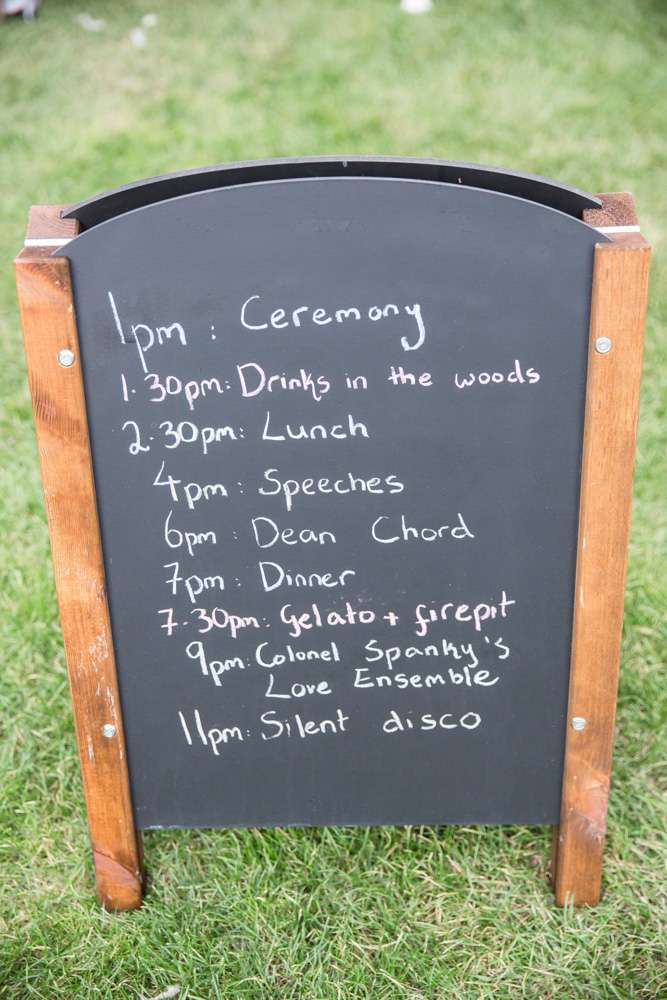 1pm : Ceremony
1.30pm: Drinks in the woods
2.30pm: Lunch
4pm : Speeches
6pm : Dean Chord
7pm : Dinner
7.30pm: Gelato + firepit
9pm: Colonel Spanky's
Love Ensemble
11pm: Silent disco